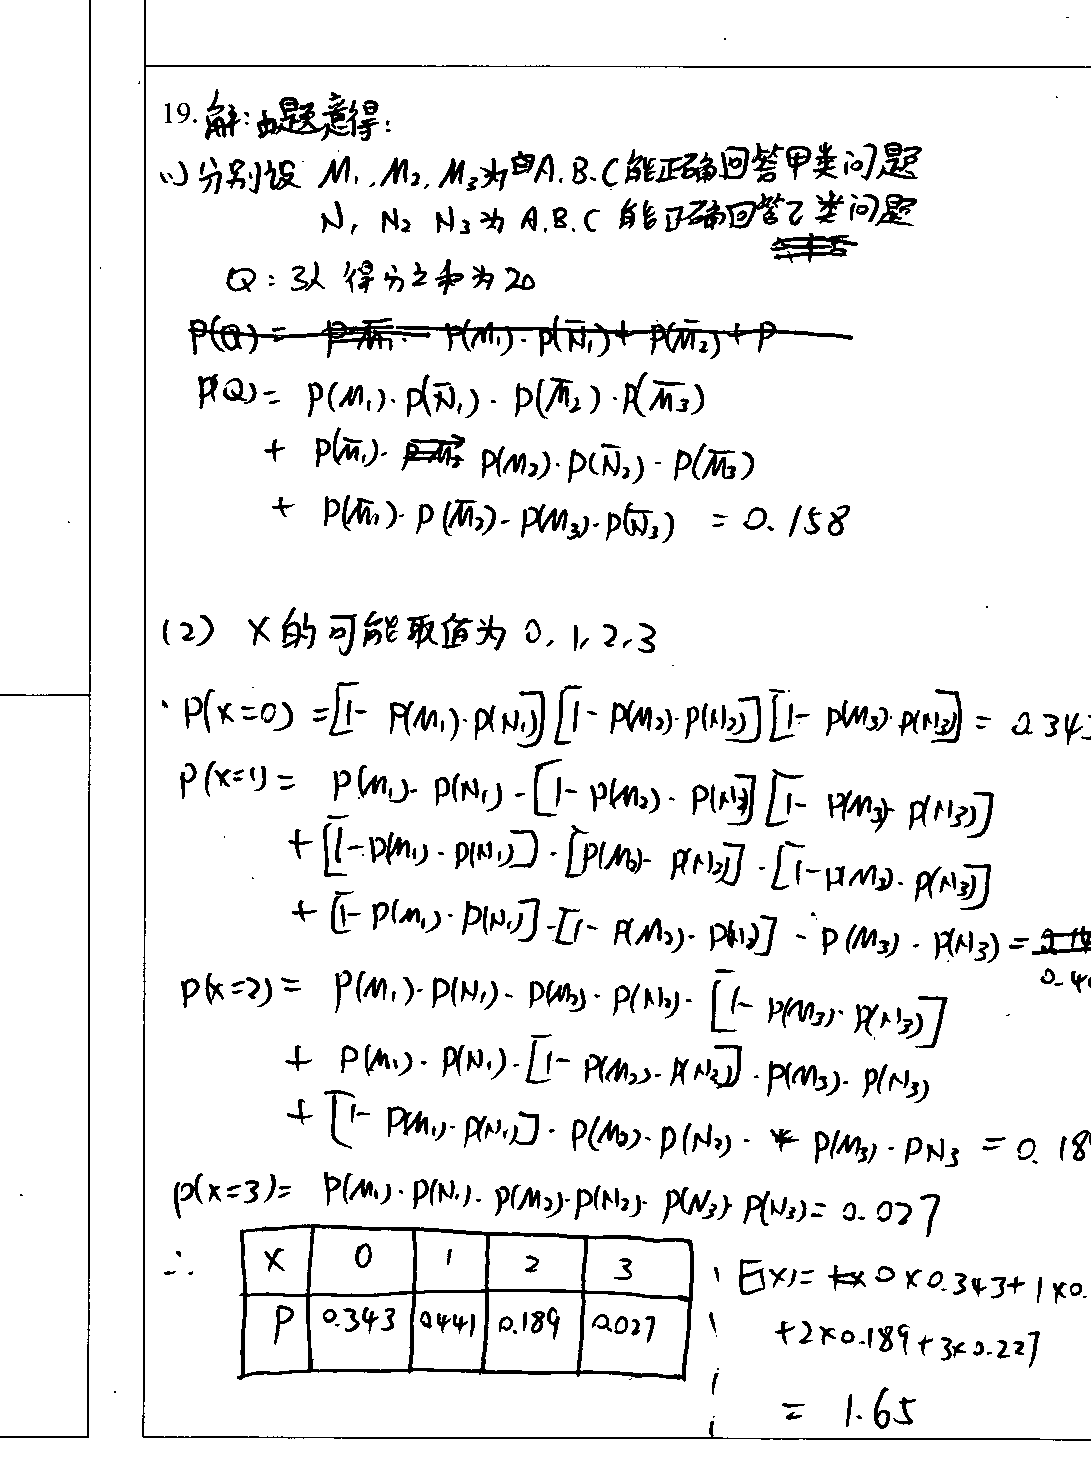 19. 解:由题意得:
(1) 分别设 M₁, M₂, M₃为A.B.C能正确回答甲类问题
N₁ N₂ N₃为 A.B.C 能正确回答乙类问题
Q:3人得分之和为20
P(Q)= P(M₁)·P(N̅₁)+P(M̅₂)+P
P(Q)= P(M₁)·P(N̅₁)·P(M̅₂)·P(M̅₃)
+ P(M̅₁)· P(M₂)·P(N̅₂)·P(M̅₃)
+ P(M̅₁)·P(M̅₂)·P(M₃)·P(N̅₃) =0.158
(2) X的可能取值为 0,1,2,3
P(X=0)=[1-P(M₁)·P(N₁)][1-P(M₂)·P(N₂)][1-P(M₃)·P(N₃)]=0.343
P(X=1)= P(M₁)·P(N₁)·[1-P(M₂)·P(N₂)][1-P(M₃)·P(N₃)]
+[1-P(M₁)·P(N₁)]·[P(M₂)·P(N₂)]·[1-P(M₃)·P(N₃)]
+[1-P(M₁)·P(N₁)]·[1-P(M₂)·P(N₂)]·P(M₃)·P(N₃)=
0.4
P(X=2)= P(M₁)·P(N₁)·P(M₂)·P(N₂)·[1-P(M₃)·P(N₃)]
+ P(M₁)·P(N₁)·[1-P(M₂)·P(N₂)]·P(M₃)·P(N₃)
+[1-P(M₁)·P(N₁)]·P(M₂)·P(N₂)· P(M₃)·PN₃ =0.18
P(X=3)= P(M₁)·P(N₁)·P(M₂)·P(N₂)·P(N₃)·P(N₃)=0.027
∴ X 0 1 2 3
P 0.343 0.441 0.189 0.027
E(X)= 0×0.343+1×0.
+2×0.189+3×0.227
= 1.65